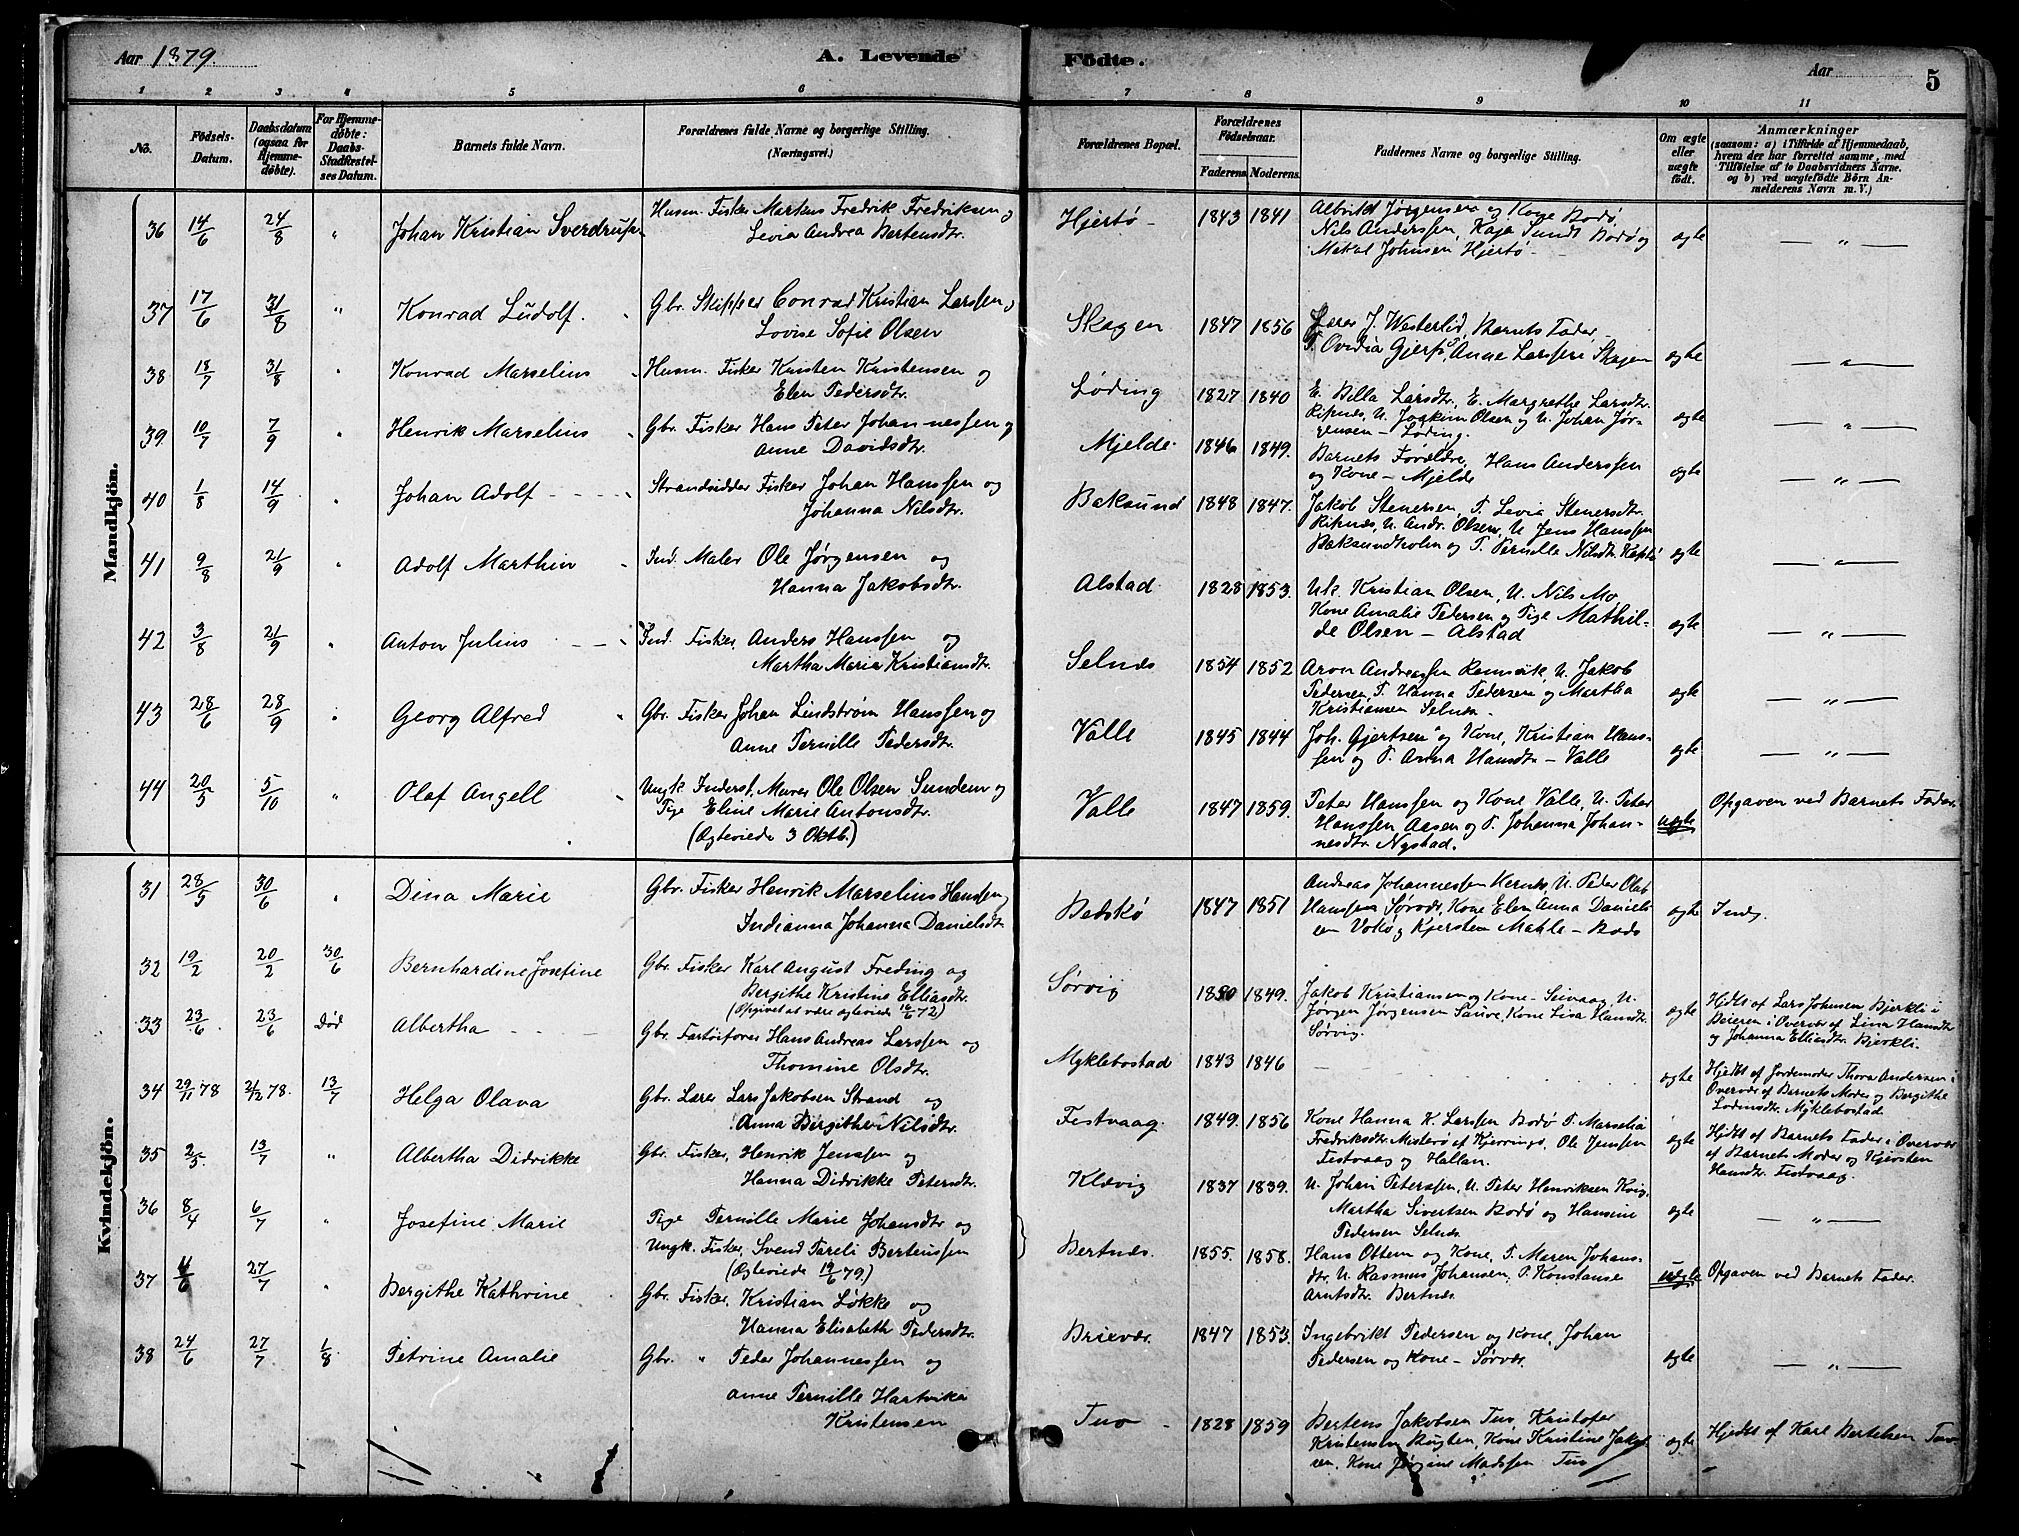 Aar 1879.
A. Levende
Födte.
Aar
5
1 2 3 4 5 6 7 8 9 10 11
No.
Födsels-
Datum.
Daabsdatum
(ogsaa for
Hjemme-
døbte).
For Hjemme-
døbte:
Daabs-
Stadfæstel-
ses Datum.
Barnets fulde Navn.
Forældrenes fulde Navne og borgerlige Stilling.
(Næringsvei.)
Forældrenes Bopæl.
Forældrenes
Födselsaar.
Faderens. Moderens.
Faddernes Navne og borgerlige Stilling.
Om ægte
eller
uægte
født.
Anmærkninger
(saasom: a) i Tilfælde af Hjemmedaab,
hvem der har forrettet samme, med
Tilføielse af to Daabsvidners Navne.
og b) ved uægtefødte Börn An-
melderens Navn m. V.)
Mandkjön.
36 14/6 24/8 " Johan Kristian Sverdrup
Husm. Fisker Markus Fredrik Fredriksen og
Levia Andrea Bertensdtr.
Hjertø 1843 1841
Albrikt Jørgensen og Kone Bodø
Nils Anderssen, Kaja Sundt Bodø og
Mekal Johnsen Hjertø
ægte — " —
37 17/6 31/8 " Konrad Ludolf.
Gbr. Skipper Conrad Kristian Larssen og
Lovise Sofie Olsen
Skagen 1847 1856
Lærer J. Westerlid, Barnets Fader,
P. Ovidia Gjersø, Anne Larssen Skagen
ægte — " —
38 18/7 31/8 " Konrad Marselius
Husm. Fisker Kristen Kristensen og
Elen Pedersdtr.
Løding 1827 1840
E. Billa Larsdtr. E. Margrethe Larsdtr.
Ripnæs, U. Joakim Olsen og U. Johan Jør-
gensen – Løding.
ægte — " —
39 10/7 7/9 " Henrik Marselius
Gbr. Fisker Hans Peter Johannessen og
Anne Davidsdtr.
Mjelde 1846 1849.
Barnets Forældre, Hans Anderssen
og Kone – Mjelde
ægte — " —
40 1/8 14/9 " Johan Adolf
Strandsidder Fisker Johan Hanssen og
Johanna Nilsdtr.
Baksund 1848 1847.
Jakob Stenersen, P. Levia Stenersdtr.
Ripnæs, U. Andr. Olsen, U. Jens Hanssen
Baksundholm og P. Pernille Nilsdtr.
ægte — " —
41 9/8 21/9 " Adolf Marthin
Ind. Maler Ole Jørgensen og
Hanna Jakobsdtr.
Alstad 1828 1853.
Uk. Kristian Olsen, U. Nils Mo
Kone Amalie Pedersen og Pige Mathil-
de Olsen – Alstad
ægte — " —
42 3/8 21/9 " Anton Julius
Ind. Fisker, Anders Hanssen og
Martha Marie Kristiansdtr.
Selnæs 1854 1852
Aron Andreassen Remsvik, U. Jakob
Pedersen, P. Hanna Pedersen og Martha
Kristiansen Selnæs.
ægte — " —
43 28/6 28/9 " Georg Alfred
Gbr. Fisker Johan Lindstrøm Hanssen og
Anne Pernille Pedersdtr.
Valle 1845 1844
Joh. Gjertsen og Kone, Kristian Hans-
sen og P. Anna Hansdtr – Valle
ægte — " —
44 20/5 5/10 " Olaf Angell
Ungk. Inderst, Murer Ole Olsen Sundem og
Pige Eline Marie Antonsdtr.
(Ægteviede 3 Oktb.)
Valle 1847 1859.
Peter Hanssen og Kone Valle, U. Peter
Hanssen Aasen og P. Johanna Johan-
nesdtr. Nystad.
uægte Opgaven ved Barnets Fader.
Kvindekjön.
31 28/5 30/6 " Dina Marie
Gbr. Fisker Henrik Marselius Hanssen og
Indianna Johanna Danielsdtr
Bedskø 1847 1851
Andreas Johannessen Hernes, U. Peder Olab
Hanssen Sørvær, Kone Elen Anna Daniels
sen Vokø og Kjersten Mahle – Bodø
ægte Ind.
32 19/2 20/2 30/6 Bernhardine Josefine
Gbr. Fisker Karl August Freding og
Bergithe Kristine Elliasdtr.
(Opgivet at være ægteviede 16/6 72)
Sørvig 1850 1849.
Jakob Kristiansen og Kone – Seivaag, U.
Jørgen Jørgensen Saure, Kone Lisa Hansdtr.
Sørvig.
ægte Hjdbt. af Lars Johnsen Bjerkli i
Beieren i Overvær af Lina Hansdtr
og Johanna Elliasdtr. Bjerkli.
33 23/6 23/6 Død Albertha
Gbr. Fartøifører Hans Andreas Larssen og
Thomine Olsdtr.
Myklebostad 1843 1846
ægte Hjdbt af Jordemoder Thora Andersen i
Overvær af Barnets Moder og Bergithe
Lodensdtr. Myklebostad.
34 29/11 78 2/12 78. 13/7 Helga Olava
Gbr. Lærer Lars Jakobsen Strand og
Anna Bergithe Nilsdtr.
Festvaag 1849. 1856
Kone Hanna K. Larssen Bodø P. Marselia
Fredriksdtr. Misterø af Kjerringø, Ole Jenssen
Festvaag og Hallan.
ægte Hjdbt af Barnets Fader i Overvær
af Barnets Moder og Kjersten
Hansdtr. Festvaag.
35 2/5. 13/7 " Albertha Didrikke
Gbr. Fisker, Henrik Jenssen og
Hanna Didrikke Petersdtr.
Klævig 1837 1839.
U. Johan Peterssen, U. Peter Henriksen Kvig
Martha Sivertsen Bodø og Hansine
Pedersen Selnæs
ægte — " —
36 8/4 6/7 " Josefine Marie
Pige Pernille Marie Johansdtr og
Ungk. Fisker, Svend Pareli Bertenssen
(Ægteviede 19/6 79.)
Bertnæs. 1855. 1858.
Hans Ottem og Kone, P. Maren Johans-
dtr. U. Rasmus Johansen, P. Konstanse
Arntsdtr. Bertnæs.
uægte Opgaven ved Barnets Fader.
37 4/6 27/7 " Bergithe Kathrine
Gbr. Fisker, Kristian Løkke og
Hanna Elisabeth Pedersdtr.
Brixvær. 1847 1853.
Ingebrikt Pedersen og Kone, Johan
Pedersen og Kone – Sørvær.
ægte — " —
38 24/6 27/7 1/8 Petrine Amalie
Gbr. " Peder Johannessen og
Anne Pernille Hartvika
Kristensen
Tuv 1828 1859
Bertens Jakobsen Tuv, Kristofer
Kristensen Bugten, Kone Kristine Jakob
sen, Kone Jørgine Madssen Tuv
ægte Hjedbt af Karl Bertelsen Tuv